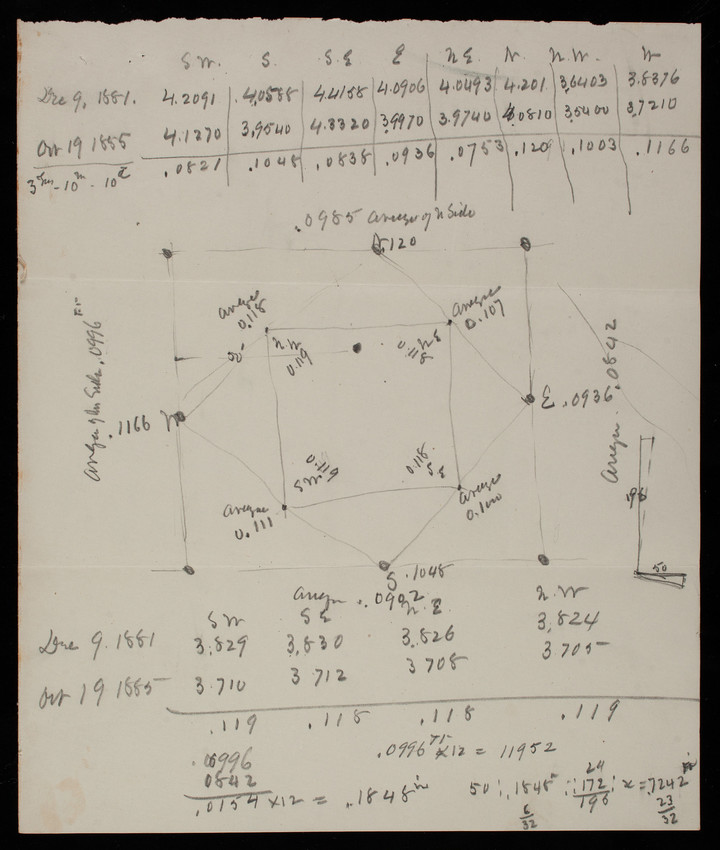 S W. S. S. E E N E. N. N. W. W
Dec 9, 1881. 4.2091 4.0588 4.4158 4.0906 4.0493 4.201 3.6403 3.8376
Oct 19 1885 4.1270 3.9540 4.3320 3.9970 3.9740 4.0810 3.5400 3.7210
3 - 10 m - 10 .0821 .1048 .0838 .0936 .0753 .120 .1003 .1166
.0985 Average of N Side
N .120
Average 0.118
Average 0.107
N W 0.119
N E 0.118
Average of W Side .0996 Ft
Average .0842
.1166 W
E .0936
S W 0.119
0.118 S E
Average 0.111
Average 0.100
196
50
S .1048
Average .0902
S W S E N. E. N. W
Dec 9. 1881 3.829 3.830 3.826 3.824
Oct 19 1885 3.710 3 712 3 708 3 705
.119 .118 .118 .119
.0996 .0996 Ft x 12 = 11952
0842
.0154 x 12 = .1848 in
50 : .1848 in :: 24 172 196 : x = .7242 in
6/32 23/32